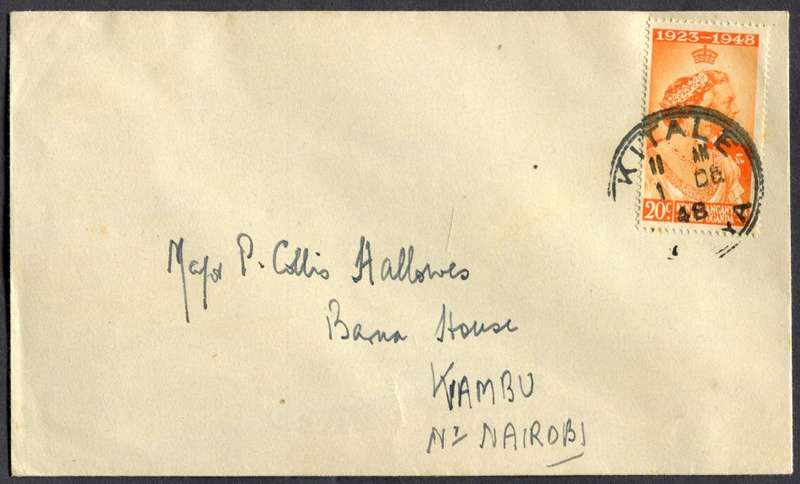 1923-1948
KITALE
11 AM
1 DE
48
20c
Major P. Collis Hallowes
Barna House
KIAMBU
Nr NAIROBI